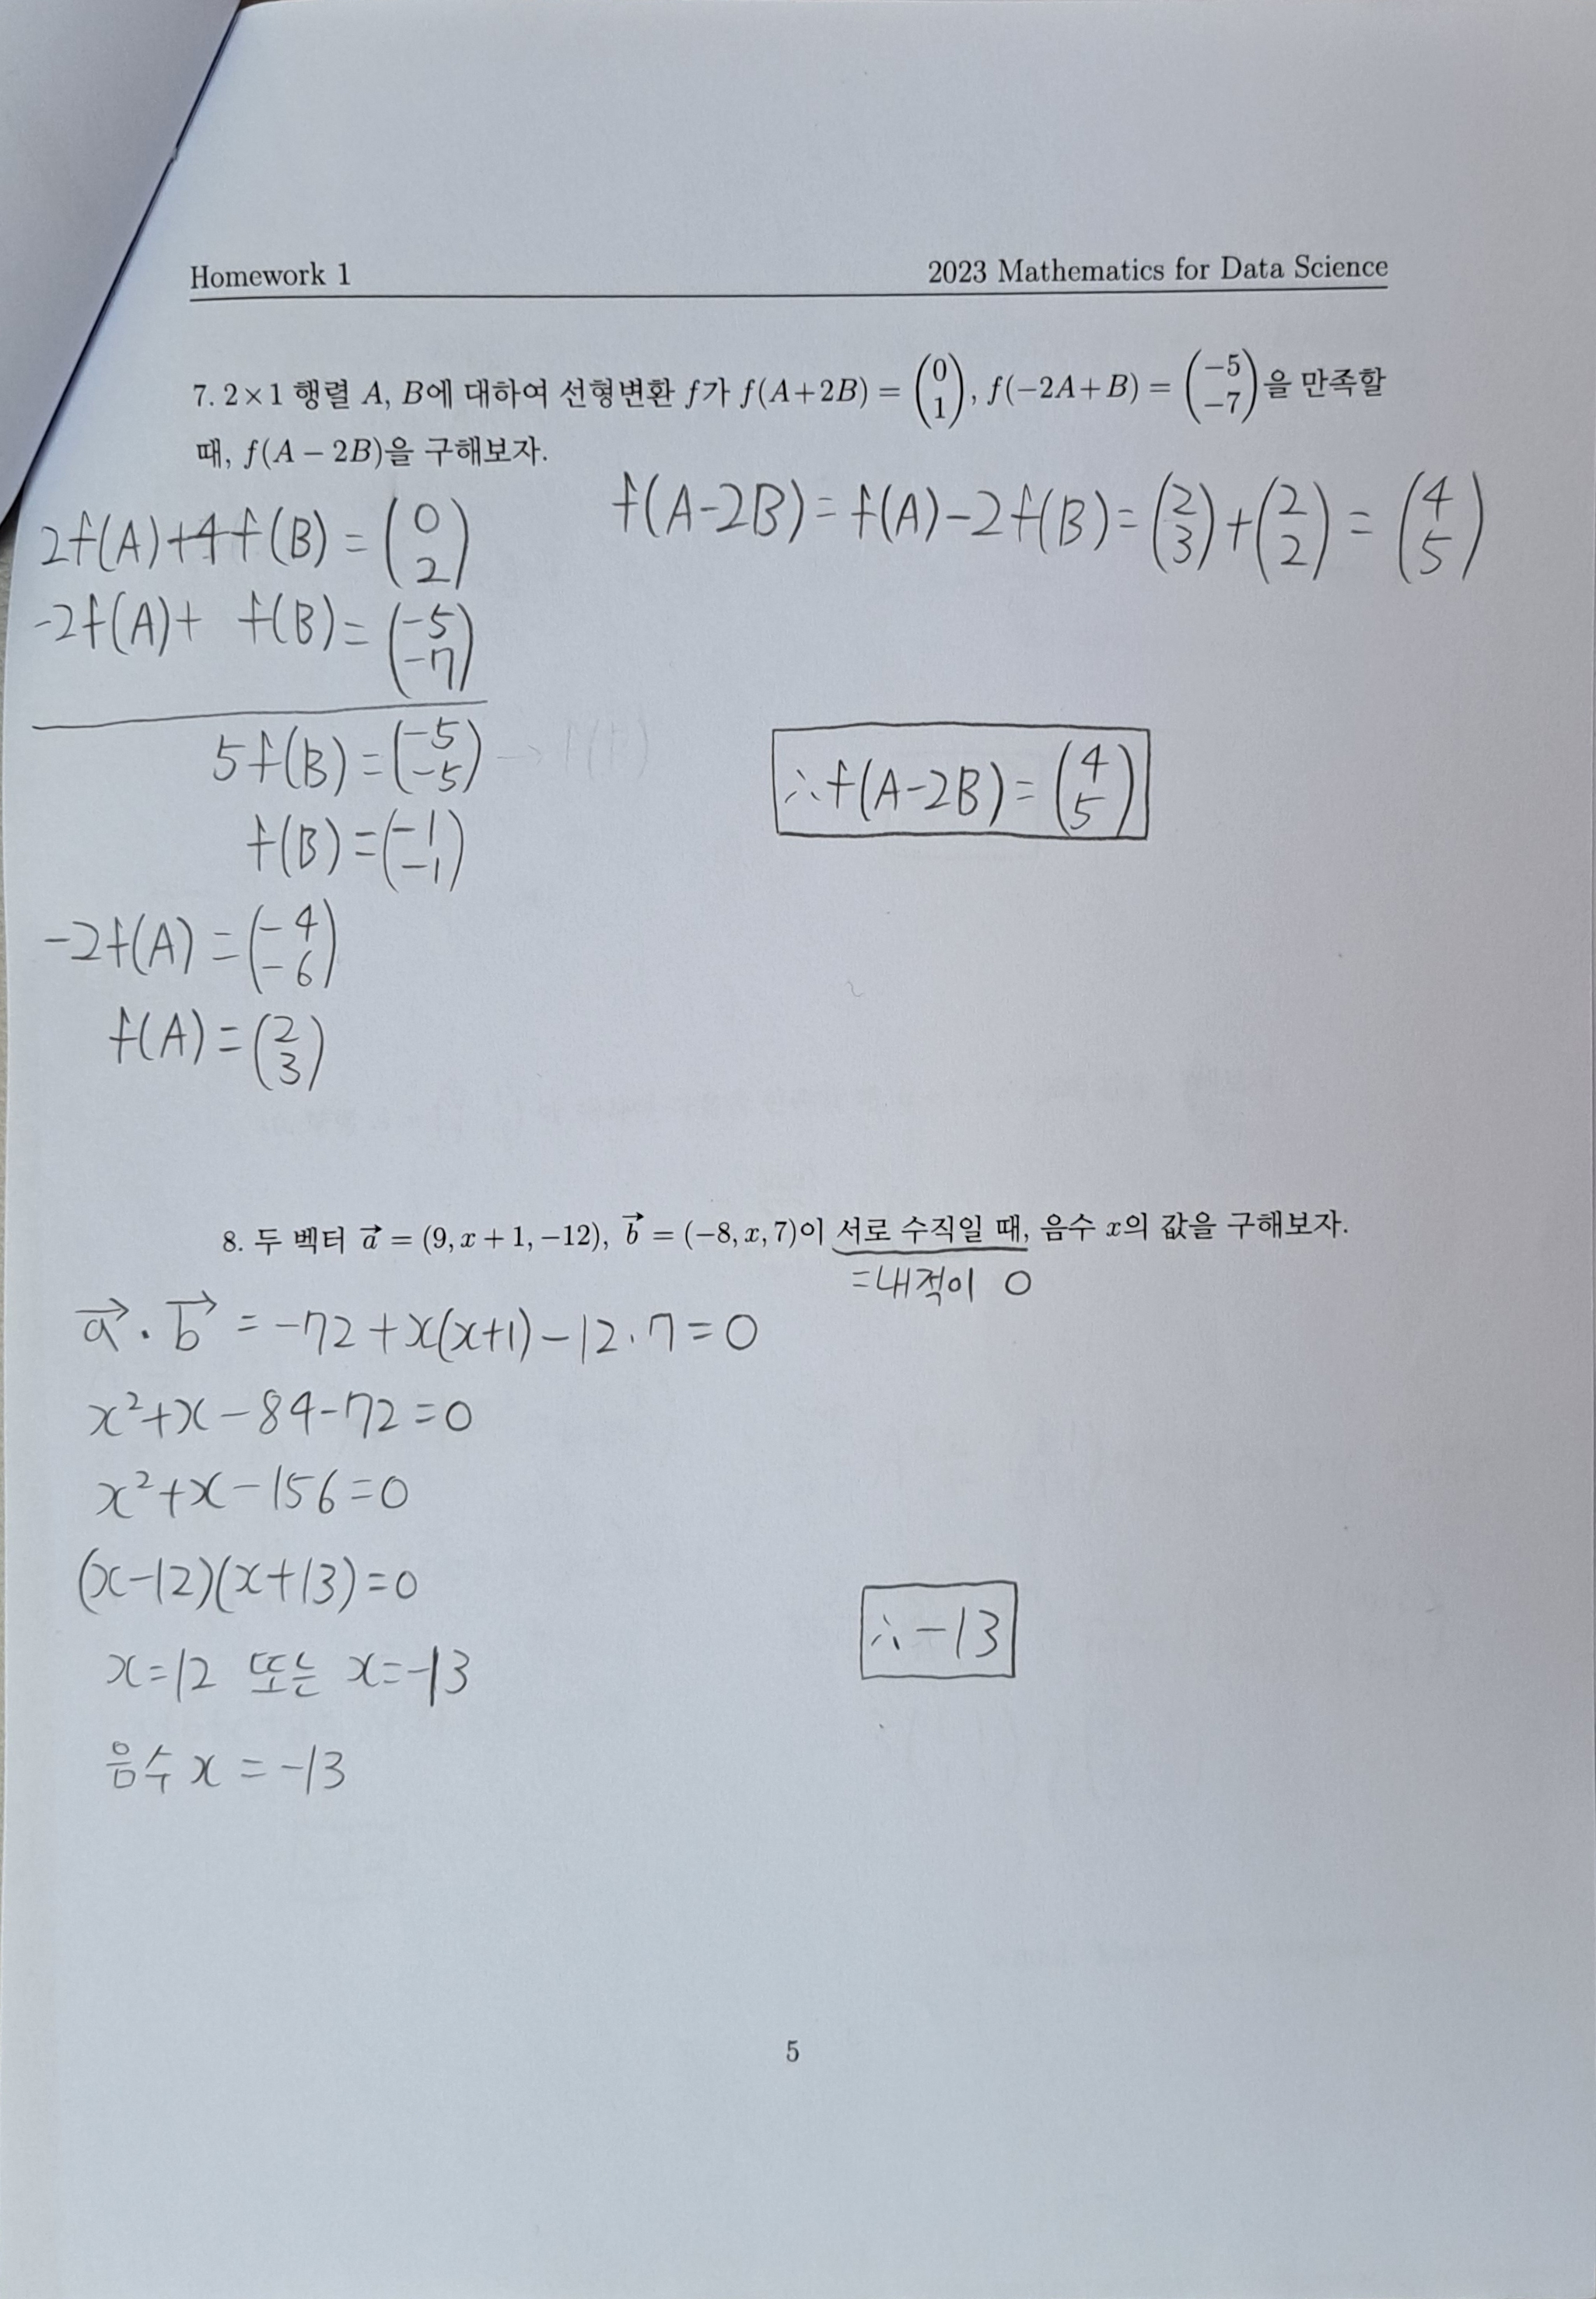 Homework 1 2023 Mathematics for Data Science
7. 2×1 행렬 A, B에 대하여 선형변환 f가 f(A+2B) = (0 1), f(−2A+B) = (−5 −7)을 만족할
때, f(A − 2B)을 구해보자.
2f(A)+4f(B) = (0 2)
-2f(A)+ f(B) = (-5 -7)
5f(B) = (-5 -5)
f(B) = (-1 -1)
-2f(A) = (-4 -6)
f(A) = (2 3)
f(A-2B) = f(A)-2f(B) = (2 3)+(2 2) = (4 5)
∴ f(A-2B) = (4 5)
8. 두 벡터 a⃗ = (9, x + 1, −12), b⃗ = (−8, x, 7)이 서로 수직일 때, 음수 x의 값을 구해보자.
=내적이 0
a⃗ · b⃗ = -72 + x(x+1) - 12·7 = 0
x²+x-84-72=0
x²+x-156=0
(x-12)(x+13)=0
x=12 또는 x=-13
음수 x = -13
∴ -13
5